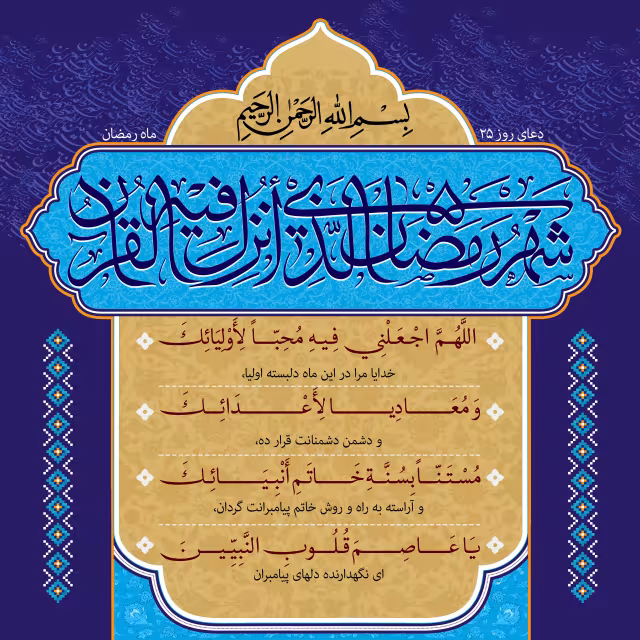 بِسْمِ اللهِ الرَّحْمٰنِ الرَّحِیمِ
دعای روز ۲۵
ماه رمضان
شَهْرُ رَمَضَانَ الَّذِي أُنْزِلَ فِيهِ الْقُرْآنُ
اللَّهُمَّ اجْعَلْنِي فِيهِ مُحِبّاً لِأَوْلِيَائِكَ
خدایا مرا در این ماه دلبسته اولیا،
وَ مُعَادِياً لِأَعْدَائِكَ
و دشمن دشمنانت قرار ده،
مُسْتَنّاً بِسُنَّةِ خَاتَمِ أَنْبِيَائِكَ
و آراسته به راه و روش خاتم پیامبرانت گردان،
يَا عَاصِمَ قُلُوبِ النَّبِيِّينَ
ای نگهدارنده دلهای پیامبران